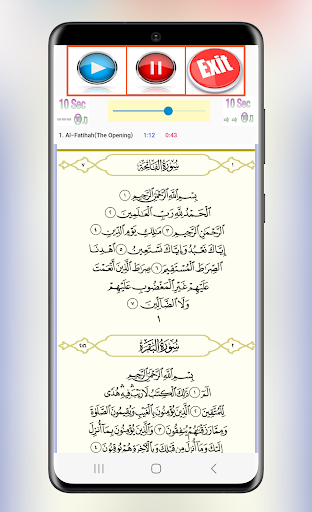 Exit
10 Sec
10 Sec
1. Al-Fatihah(The Opening) 1:12 0:43
٧ سُورَةُ الْفَاتِحَةِ ١
بِسْمِ اللَّهِ الرَّحْمَٰنِ الرَّحِيمِ ١
الْحَمْدُ لِلَّهِ رَبِّ الْعَالَمِينَ ٢
الرَّحْمَٰنِ الرَّحِيمِ ٣ مَالِكِ يَوْمِ الدِّينِ ٤
إِيَّاكَ نَعْبُدُ وَإِيَّاكَ نَسْتَعِينُ ٥ اهْدِنَا
الصِّرَاطَ الْمُسْتَقِيمَ ٦ صِرَاطَ الَّذِينَ أَنْعَمْتَ
عَلَيْهِمْ غَيْرِ الْمَغْضُوبِ عَلَيْهِمْ
وَلَا الضَّالِّينَ ٧
١
٢٨٦ سُورَةُ الْبَقَرَةِ ٢
بِسْمِ اللَّهِ الرَّحْمَٰنِ الرَّحِيمِ
الٓمٓ ١ ذَٰلِكَ الْكِتَابُ لَا رَيْبَ فِيهِ هُدًى
لِّلْمُتَّقِينَ ٢ الَّذِينَ يُؤْمِنُونَ بِالْغَيْبِ وَيُقِيمُونَ الصَّلَاةَ
وَمِمَّا رَزَقْنَاهُمْ يُنفِقُونَ ٣ وَالَّذِينَ يُؤْمِنُونَ بِمَا أُنزِلَ
إِلَيْكَ وَمَا أُنزِلَ مِن قَبْلِكَ وَبِالْآخِرَةِ هُمْ يُوقِنُونَ ٤